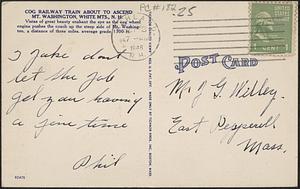 COG RAILWAY TRAIN ABOUT TO ASCEND
MT. WASHINGTON, WHITE MTS., N. H.
A vision of great beauty enchant the eye as the cog wheel
engine pushes the coach up the steep side of Mt. Washing-
ton, a distance of three miles, average grade 1300 ft.
PC#
.25
1948
N.H.
1 CENT 1
POST CARD
I Jake dont
let the Job
get you having
a fine time
Phil
Mr J G Willey
East Pepperell
Mass.
92475